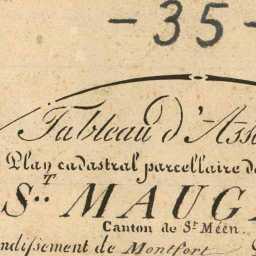 -35-
Tableau d'Ass
Plan cadastral parcellaire de
S.T MAUG
Canton de St Méen
ndissement de Montfort